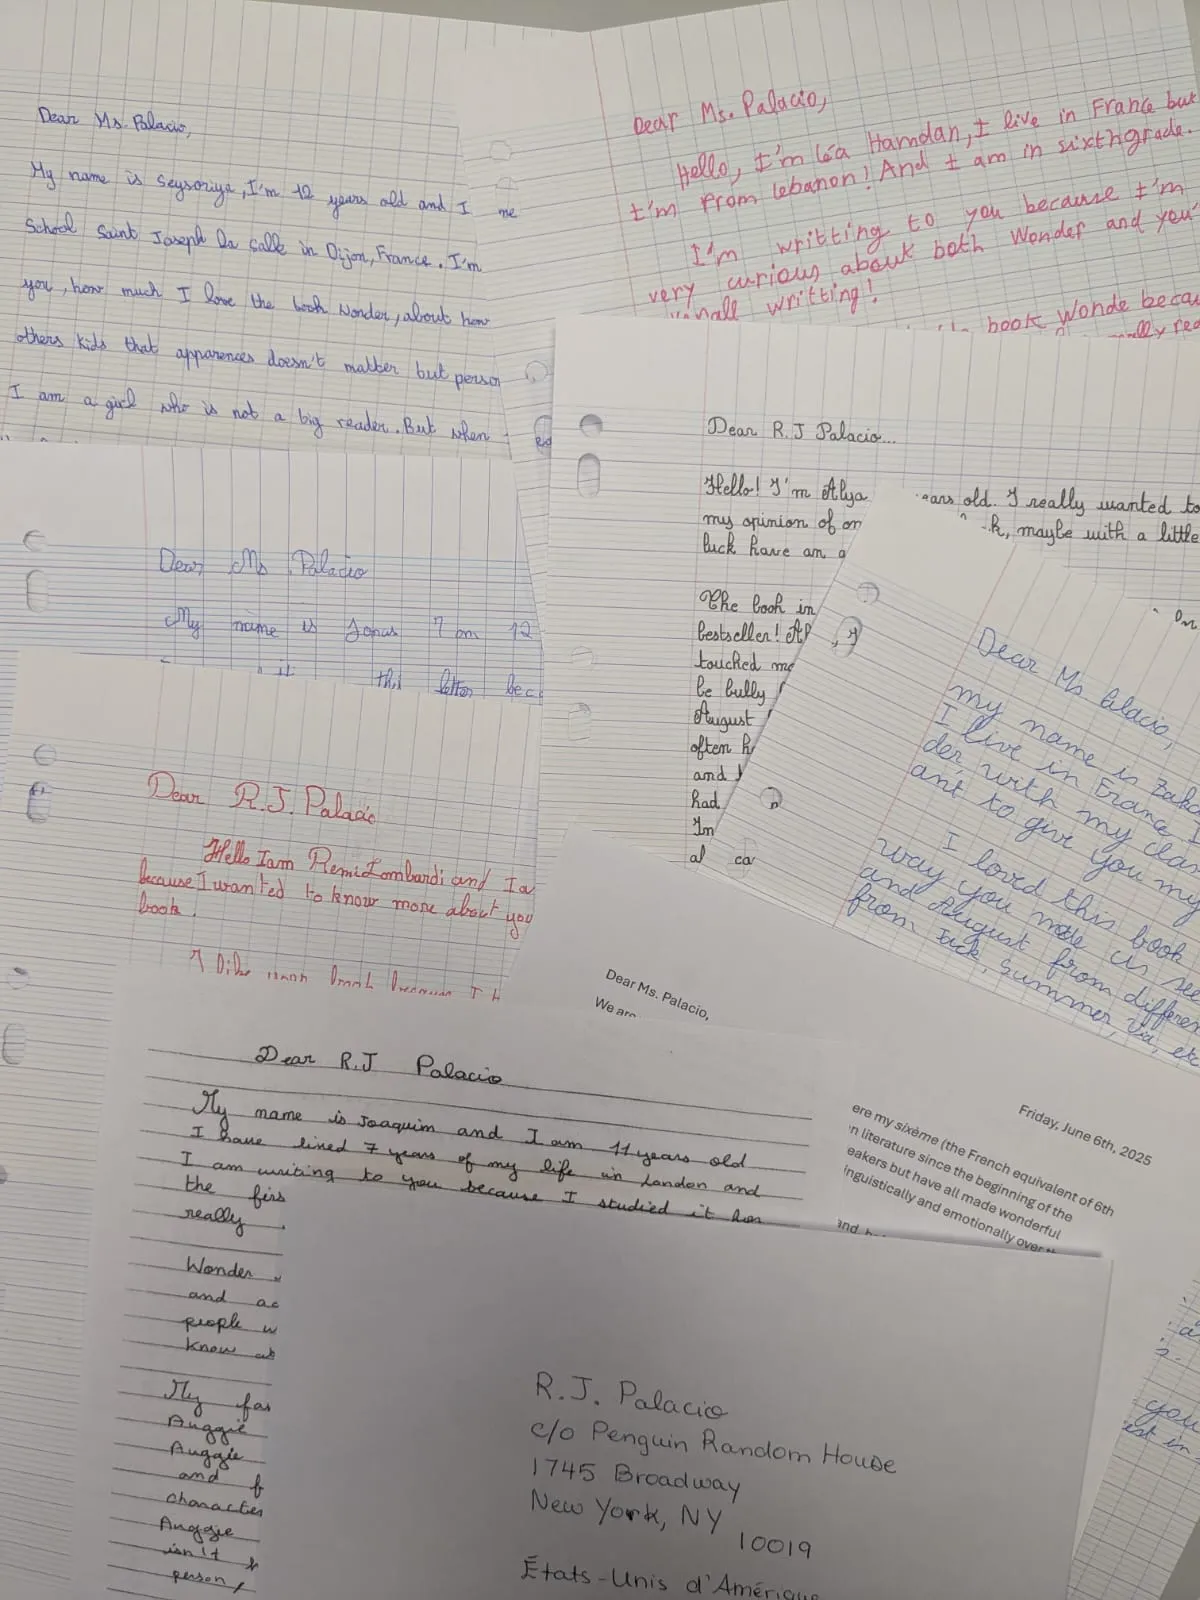 Dear Ms. Palacio,
My name is Seysoriya, I'm 12 years old and I me
School Saint Joseph La Salle in Dijon, France. I'm
you, how much I love the book wonder, about how
others kids that apparences doesn't matter but person
I am a girl who is not a big reader. But when
Dear Ms. Palacio,
Hello, I'm Léa Hamdan, I live in France but
I'm from Lebanon! And I am in sixthgrade.
I'm writting to you because I'm
very curious about both Wonder and you'
writting!
book Wonde becau
Dear R.J Palacio...
Hello! I'm Alya ears old. I really wanted to
my opinion of on k, maybe with a little
luck have an a
The book in
bestseller! Al
touched me
be bully
August
often h
and
had
Im
al ca
Dear Ms Palacio
My name is Jonas I am 12
this letter bec
Dear Ms Palacio,
my name is Zaka
I live in France I
der with my clas
ant to give you my
I loved this book
way you made us see
and August from differen
from Jack, Summer, Via, etc
Dear R.J. Palacio
Hello I am Remi Lombardi and I a
because I wanted to know more about you
book.
I like
Dear Ms. Palacio,
We are
Friday, June 6th, 2025
ere my sixème (the French equivalent of 6th
n literature since the beginning of the
eakers but have all made wonderful
inguistically and emotionally over
and
Dear R.J Palacio
My name is Joaquim and I am 11 years old
I have lived 7 years of my life in London and
I am writing to you because I studied it
the firs
really
Wonder
and ac
people w
know ab
My fav
Auggie
Auggie
and f
character
Auggie
isn't
person,
you
est in
R.J. Palacio
c/o Penguin Random House
1745 Broadway
New York, NY
10019
États-Unis d'Amérique